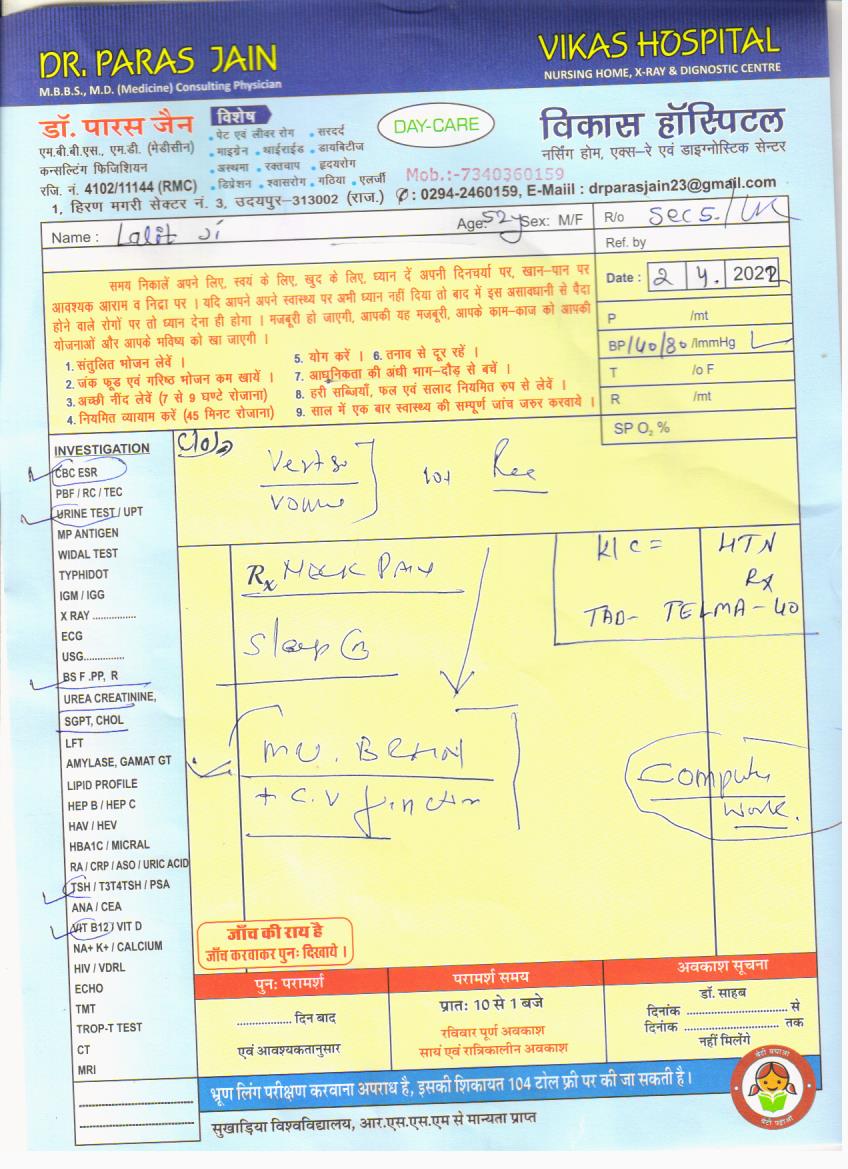 DR. PARAS JAIN
M.B.B.S., M.D. (Medicine) Consulting Physician
VIKAS HOSPITAL
NURSING HOME, X-RAY & DIGNOSTIC CENTRE
डॉ. पारस जैन
एम.बी.बी.एस., एम.डी. (मेडीसीन)
कन्सल्टिंग फिजिशियन
रजि. नं. 4102/11144 (RMC)
विशेष
• पेट एवं लीवर रोग • सरदर्द
• माइग्रेन • थाईराईड • डायबिटीज
• अस्थमा • रक्तचाप • हृदयरोग
• डिप्रेशन • श्वासरोग • गठिया • एलर्जी
DAY-CARE
विकास हॉस्पिटल
नर्सिंग होम, एक्स-रे एवं डाइग्नोस्टिक सेन्टर
Mob.:-7340360159
1, हिरण मगरी सेक्टर नं. 3, उदयपुर-313002 (राज.) ✆: 0294-2460159, E-Maiil : drparasjain23@gmail.com
Name : Lalit Ji Age: 52y Sex: M/F R/o Sec 5.
Ref. by
Date : 2 4. 2022
समय निकालें अपने लिए, स्वयं के लिए, खुद के लिए, ध्यान दें अपनी दिनचर्या पर, खान-पान पर
आवश्यक आराम व निद्रा पर । यदि आपने अपने स्वास्थ्य पर अभी ध्यान नहीं दिया तो बाद में इस असावधानी से पैदा
होने वाले रोगों पर तो ध्यान देना ही होगा । मजबूरी हो जाएगी, आपकी यह मजबूरी, आपके काम-काज को आपकी
योजनाओं और आपके भविष्य को खा जाएगी ।
1. संतुलित भोजन लेवें ।
2. जंक फूड एवं गरिष्ठ भोजन कम खायें ।
3. अच्छी नींद लेवें (7 से 9 घण्टे रोजाना)
4. नियमित व्यायाम करें (45 मिनट रोजाना)
5. योग करें । 6. तनाव से दूर रहें ।
7. आधुनिकता की अंधी भाग-दौड़ से बचें ।
8. हरी सब्जियाँ, फल एवं सलाद नियमित रुप से लेवें ।
9. साल में एक बार स्वास्थ्य की सम्पूर्ण जांच जरुर करवाये ।
P /mt
BP 140/80 /ImmHg
T /o F
R /mt
SP O2 %
INVESTIGATION
CBC ESR
PBF / RC / TEC
URINE TEST / UPT
MP ANTIGEN
WIDAL TEST
TYPHIDOT
IGM / IGG
X RAY ................
ECG
USG..............
BS F .PP, R
UREA CREATININE,
SGPT, CHOL
LFT
AMYLASE, GAMAT GT
LIPID PROFILE
HEP B / HEP C
HAV / HEV
HBA1C / MICRAL
RA / CRP / ASO / URIC ACID
TSH / T3T4TSH / PSA
ANA / CEA
VIT B12 / VIT D
NA+ K+ / CALCIUM
HIV / VDRL
ECHO
TMT
TROP-T TEST
CT
MRI
C/o
Rx Neck Pain
Sleep
K/C = HTN
Rx
TAB- TELMA-40
Computer
work.
जाँच की राय है
जाँच करवाकर पुनः दिखाये ।
पुनः परामर्श
................... दिन बाद
एवं आवश्यकतानुसार
परामर्श समय
प्रातः 10 से 1 बजे
रविवार पूर्ण अवकाश
सायं एवं रात्रिकालीन अवकाश
अवकाश सूचना
डॉ. साहब
दिनांक ................................ से
दिनांक ............................ तक
नहीं मिलेंगे
भ्रूण लिंग परीक्षण करवाना अपराध है, इसकी शिकायत 104 टोल फ्री पर की जा सकती है ।
सुखाड़िया विश्वविद्यालय, आर.एस.एस.एम से मान्यता प्राप्त
बेटी बचाओ
बेटी पढ़ाओ